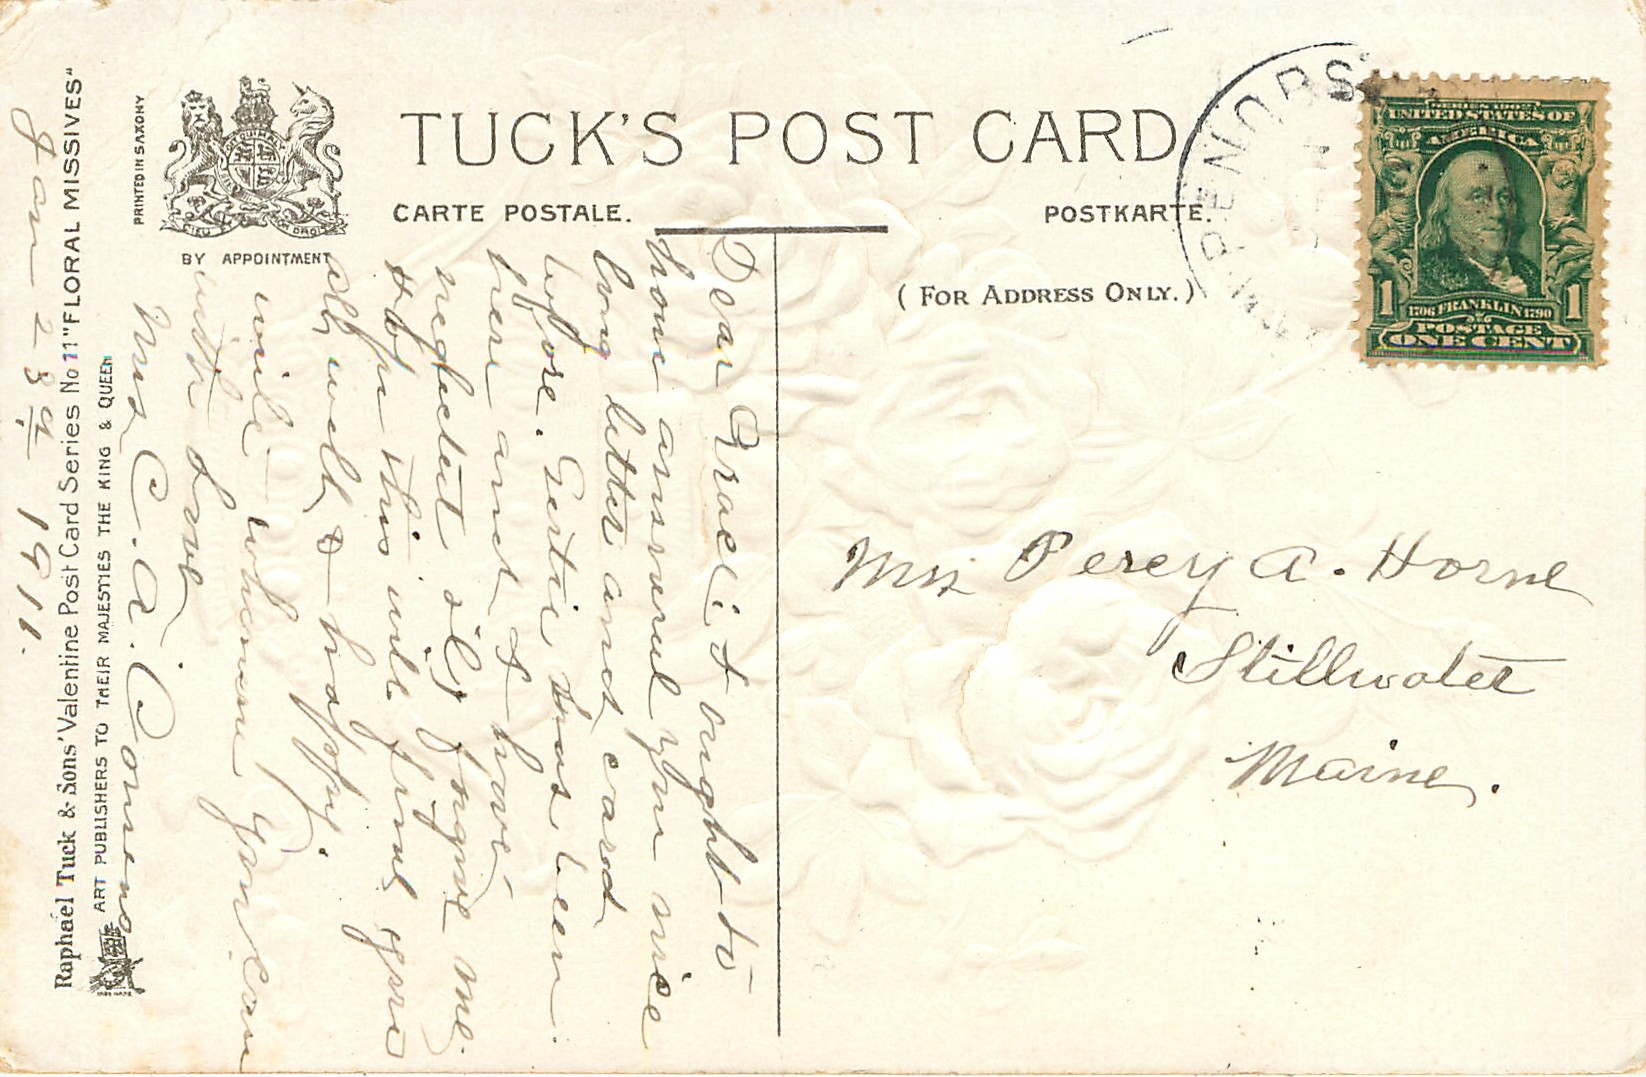 TUCK'S POST CARD
CARTE POSTALE.
POSTKARTE.
(FOR ADDRESS ONLY.)
BY APPOINTMENT
PRINTED IN SAXONY
DIEU ET MON DROIT
PENOBS
UNITED STATES OF
AMERICA
1706 FRANKLIN 1790
POSTAGE
ONE CENT
1 1
Mrs Percy A. Horne
Stillwater
Maine.
Dear Grace: I ought to
have answered your nice
long letter and card
before. Gertie has been
here and I have
neglected it so forgive me.
Hope this will find you
all well, & happy.
write whenever you can
with Love
Mrs C. A.
Jan 28th 1911.
Raphael Tuck & Sons' Valentine Post Card Series No 11 "FLORAL MISSIVES"
ART PUBLISHERS TO THEIR MAJESTIES THE KING & QUEEN